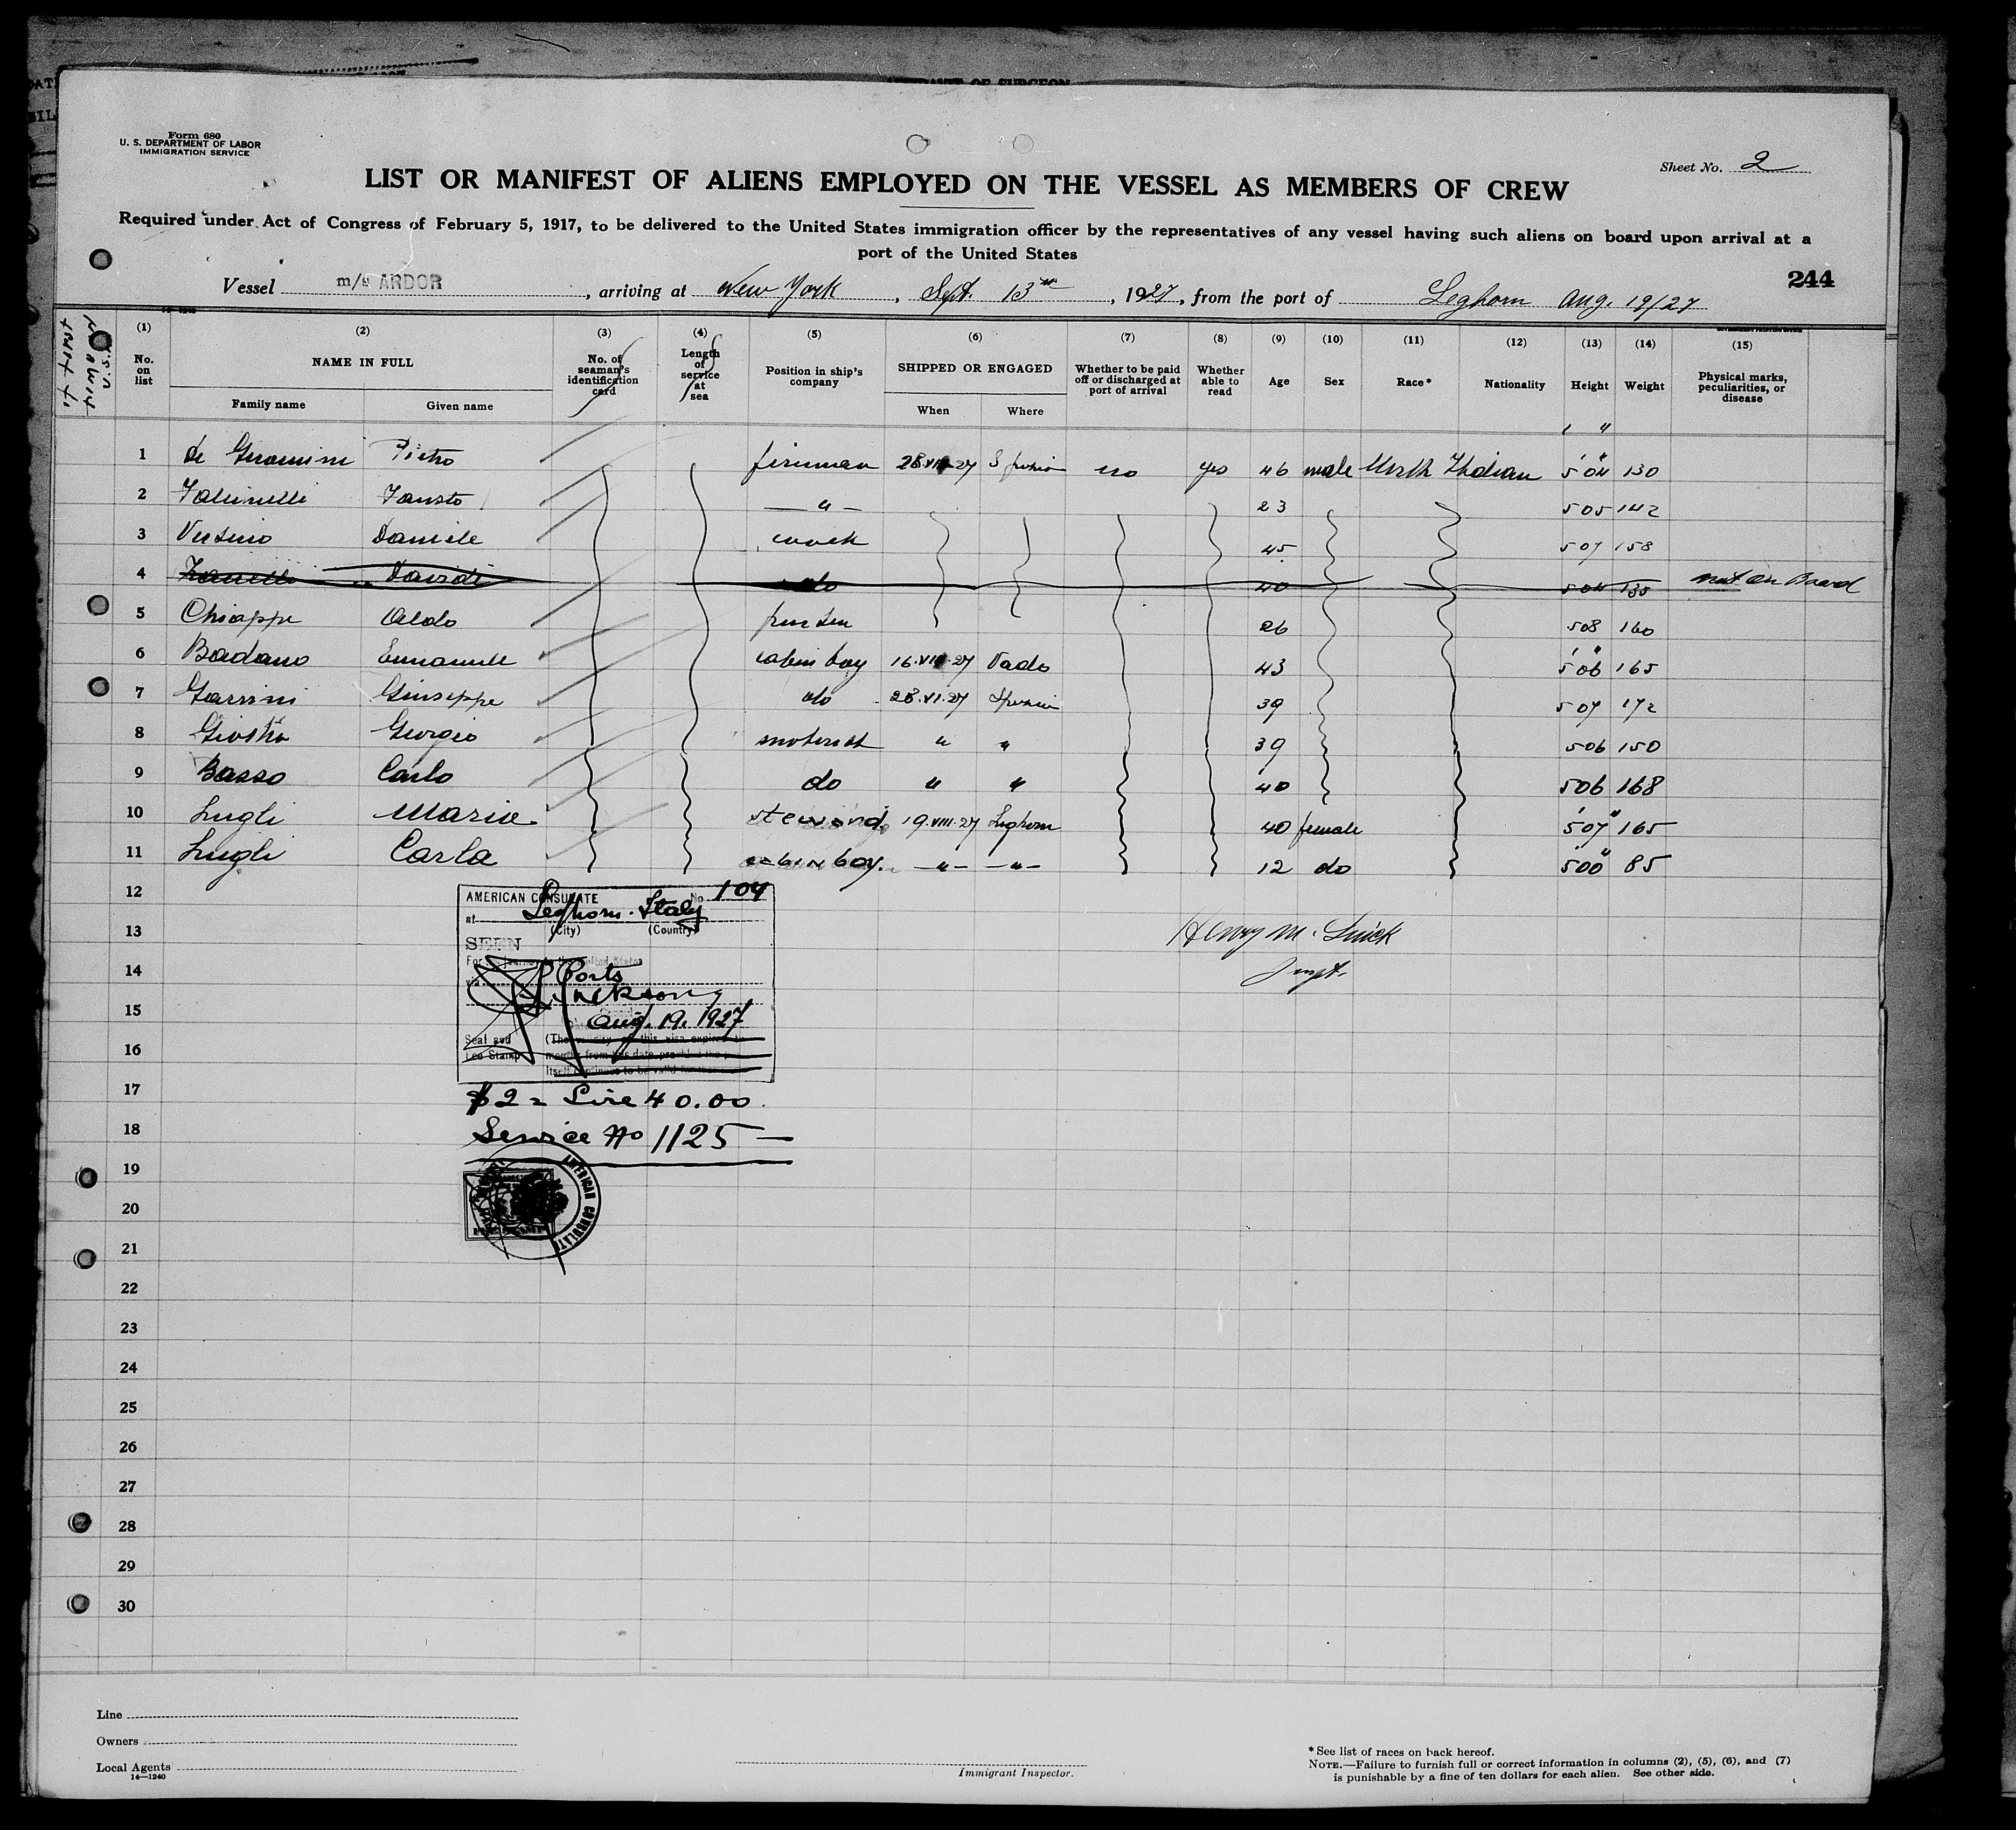 Form 680
U. S. DEPARTMENT OF LABOR
IMMIGRATION SERVICE
Sheet No. 2
LIST OR MANIFEST OF ALIENS EMPLOYED ON THE VESSEL AS MEMBERS OF CREW
Required under Act of Congress of February 5, 1917, to be delivered to the United States immigration officer by the representatives of any vessel having such aliens on board upon arrival at a
port of the United States
244
Vessel m/s ARDOR, arriving at New York, Sept. 13th, 1927, from the port of Leghorn Aug. 19/27
(1) (2) (3) (4) (5) (6) (7) (8) (9) (10) (11) (12) (13) (14) (15)
No. on list
NAME IN FULL
Family name Given name
No. of seaman's identification card
Length of service at sea
Position in ship's company
SHIPPED OR ENGAGED
When Where
Whether to be paid off or discharged at port of arrival
Whether able to read
Age Sex Race* Nationality Height Weight
Physical marks, peculiarities, or disease
1 Pietro 28.VII.27 Spezia no yes 46 male North Italian 5'04" 130
2 Fausto — " — 23 505 142
3 Daniele 45 507 158
4 Davide do 40 504 135 not on Board
5 Chiappe Aldo 26 508 160
6 Badano Emanuele cabin boy 16.VII.27 Vado 43 5'06" 165
7 Giuseppe do 28.VI.27 Spezia 39 507 172
8 Giorgio motorist " " 39 506 150
9 Basso Carlo do " " 40 506 168
10 Lugli Maria steward 19.VIII.27 Leghorn 40 female 5'07" 165
11 Lugli Carla cabin boy. — " — — " — 12 do 5'00" 85
12
13
14
15
16
17
18
19
20
21
22
23
24
25
26
27
28
29
30
AMERICAN CONSULATE No. 104
at Leghorn. Italy
(City) (Country)
SEEN
Ports
Aug. 19. 1927
Seal and
Fee Stamp
$2 = Lire 40.00
Service No 1125 —
AMERICAN CONSULATE
Henry M.
Inspt.
Line
Owners
Local Agents
14—1240
Immigrant Inspector.
* See list of races on back hereof.
NOTE.—Failure to furnish full or correct information in columns (2), (5), (6), and (7)
is punishable by a fine of ten dollars for each alien. See other side.